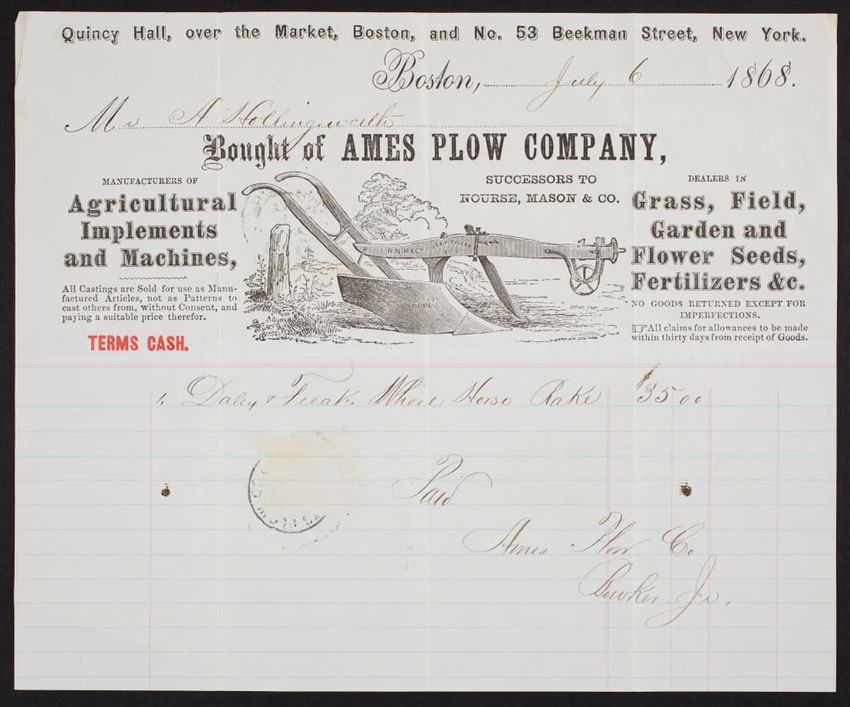 Quincy Hall, over the Market, Boston, and No. 53 Beekman Street, New York.
Boston, July 6 1868.
Mr A Hollingsworth
Bought of AMES PLOW COMPANY,
SUCCESSORS TO
NOURSE, MASON & CO.
MANUFACTURERS OF
Agricultural
Implements
and Machines,
All Castings are Sold for use as Manu-
factured Articles, not as Patterns to
cast others from, without Consent, and
paying a suitable price therefor.
TERMS CASH.
DEALERS IN
Grass, Field,
Garden and
Flower Seeds,
Fertilizers &c.
NO GOODS RETURNED EXCEPT FOR
IMPERFECTIONS.
☞All claims for allowances to be made
within thirty days from receipt of Goods.
1. & Treak. Wheel Horse Rake $35 00
Paid
Ames Plow Co
Bowker Jr.